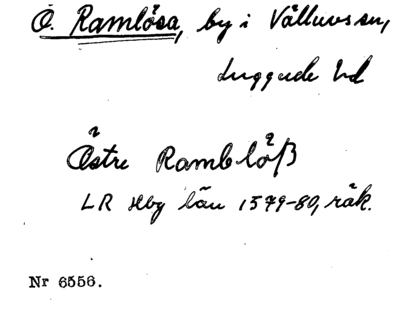 Ö. Ramlösa, by i Välluvs sn,
Luggude hd
Östre Ramblöß
LR Hbg län 1579-80, räk.
Nr 6556.